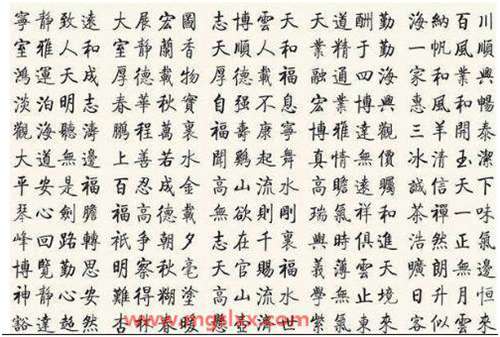 寧靜致遠 大展宏圖 志博雲天 天道酬勤 海納百川
室雅人和 室靜蘭香 天順人和 業精于勤 一帆風順
鴻運天成 厚德載物 厚德載福 融通四海 家和業興
淡泊明志 春華秋實 自强不息 宏業博興 惠風和暢
觀海聽濤 鵬程萬裏 福壽康寧 博雅達觀 三羊開泰
大道無邊 上善若水 聞鷄起舞 真情無價 冰清玉潔
平安是福 百忍成金 高山流水 高瞻遠矚 誠信天下
琴心劍膽 福高德載 無欲則剛 瑞氣祥和 茶禪一味
峰回路轉 衹争朝夕 志在千裏 與時俱進 浩然正氣
博覽勤思 明察秋毫 天官賜福 義薄雲天 曠朗無邊
神静心安 難得糊塗 高山流水 學無止境 日升月恒
豁達超然 杏林春暖 懸壺濟世 紫氣東來 客似雲來